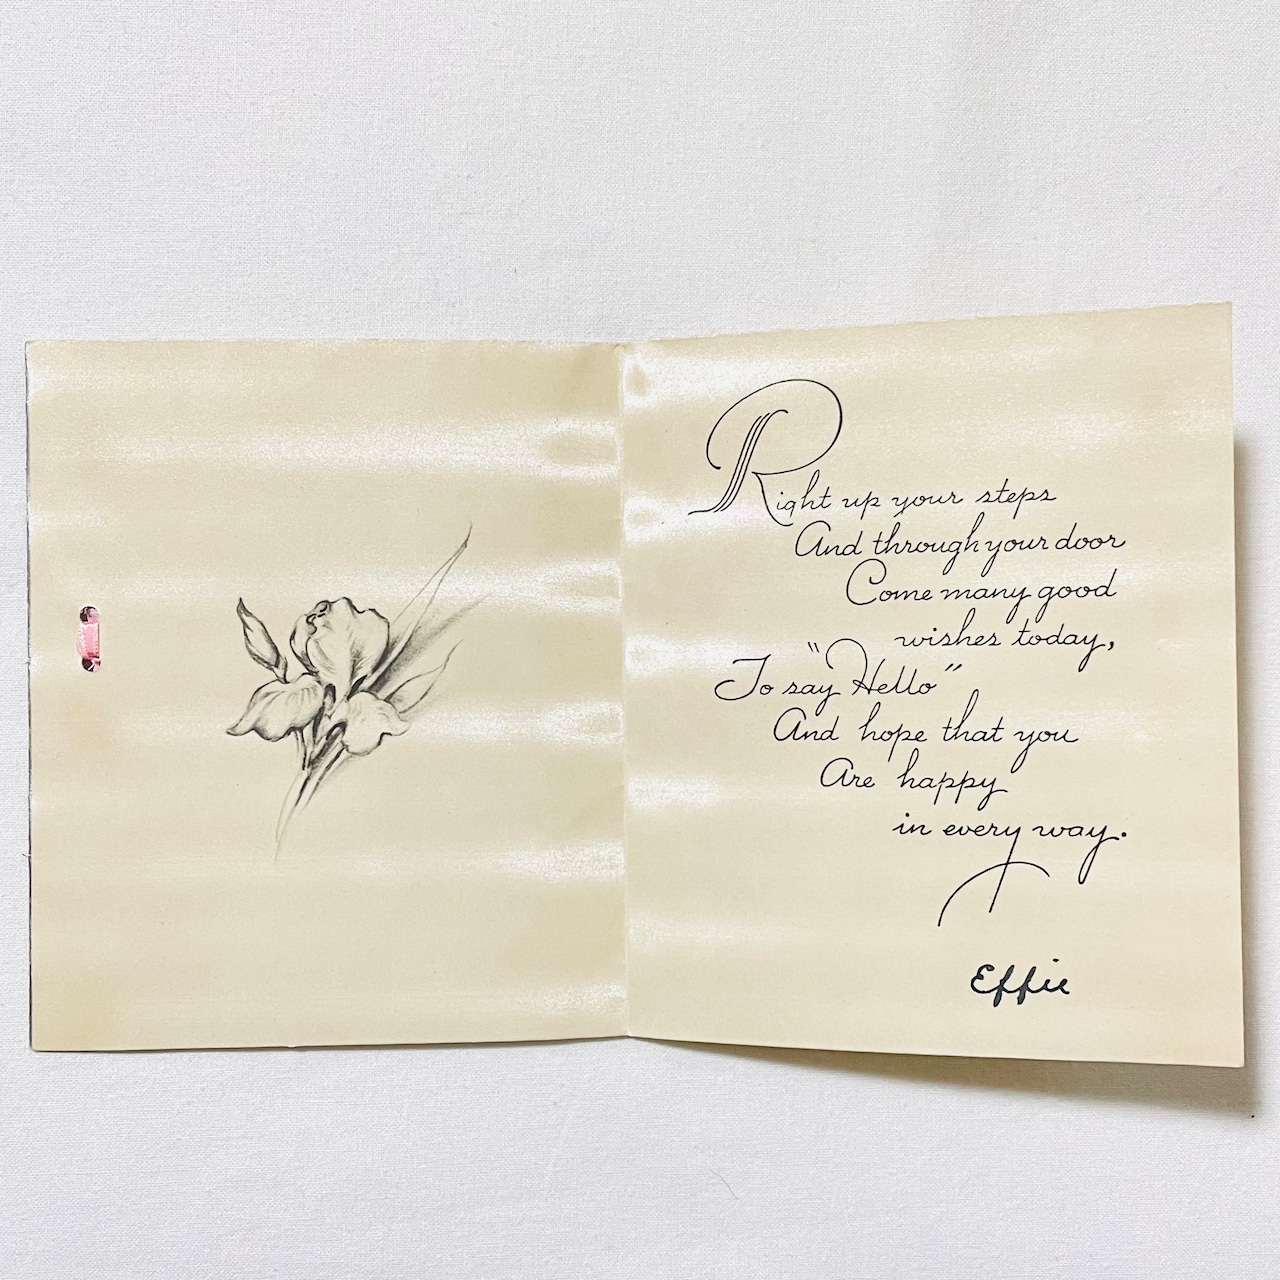 Right up your steps
And through your door
Come many good
wishes today,
To say "Hello"
And hope that you
Are happy
in every way.
Effie